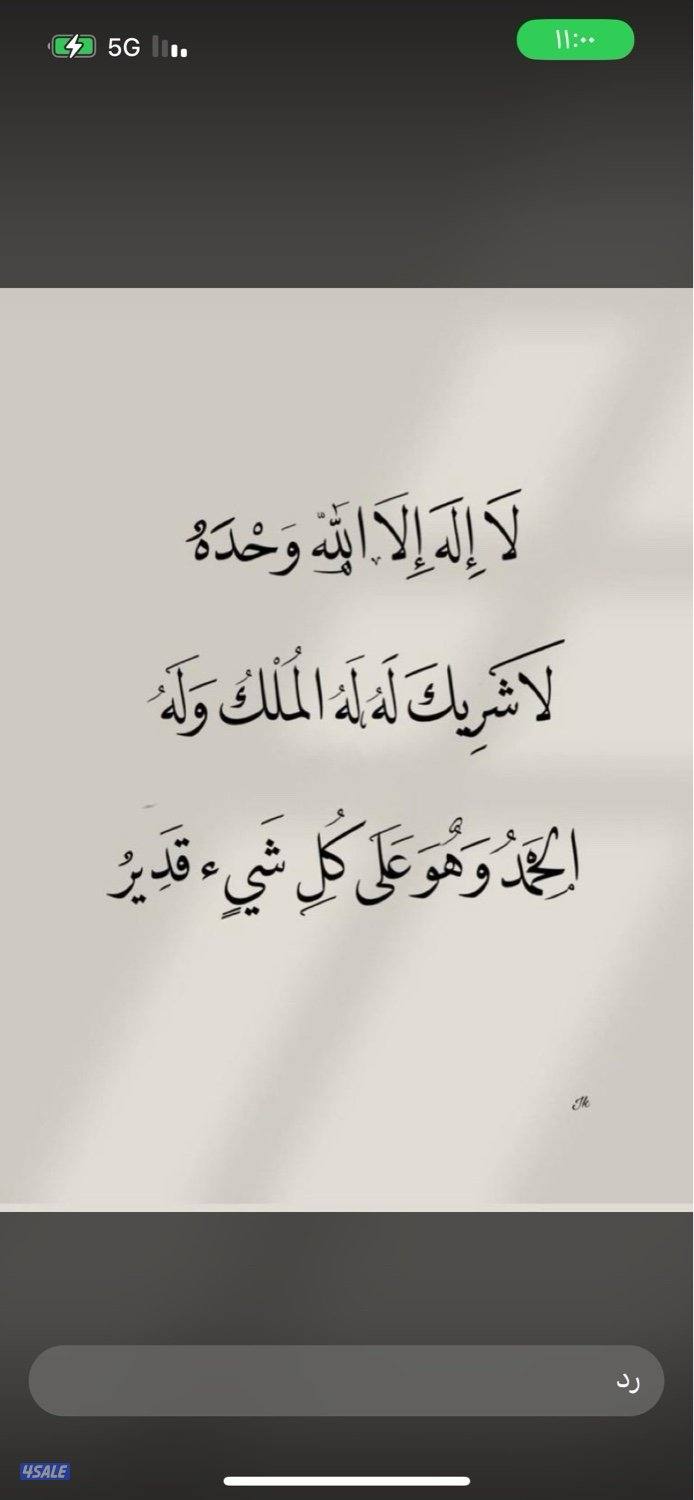 5G
١١:٠٠
لَا إِلَهَ إِلَّا اللهُ وَحْدَهُ
لَا شَرِيكَ لَهُ لَهُ المُلْكُ وَلَهُ
الحَمْدُ وَهُوَ عَلَى كُلِ شَيْءٍ قَدِيرُ
Jk
رد
4SALE